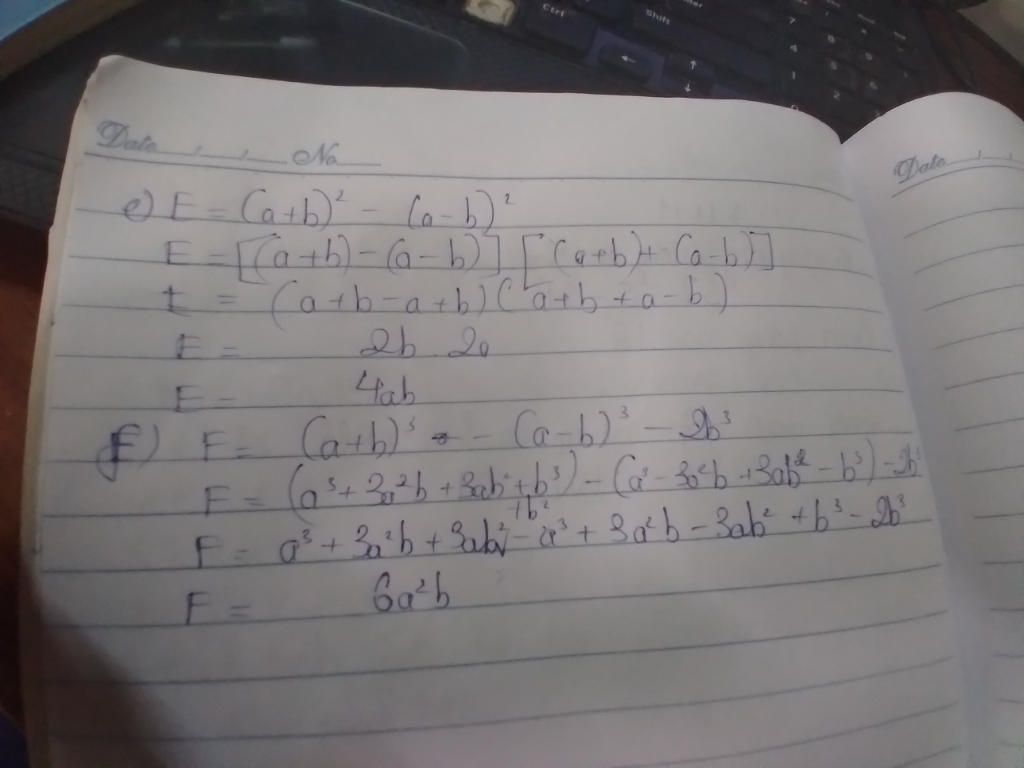 Ctrl
Shift
Date No
Date
e) E = (a+b)² - (a-b)²
E = [(a+b)-(a-b)] [(a+b)+(a-b)]
E = (a+b-a+b)(a+b+a-b)
E = 2b 2a
E = 4ab
F) F = (a+b)³ - (a-b)³ - 2b³
F = (a³+3a²b+3ab²+b³)-(a³-3a²b+3ab²-b³)-2b³
+b²
F = a³+3a²b+3ab²-a³+3a²b-3ab²+b³-2b³
F = 6a²b